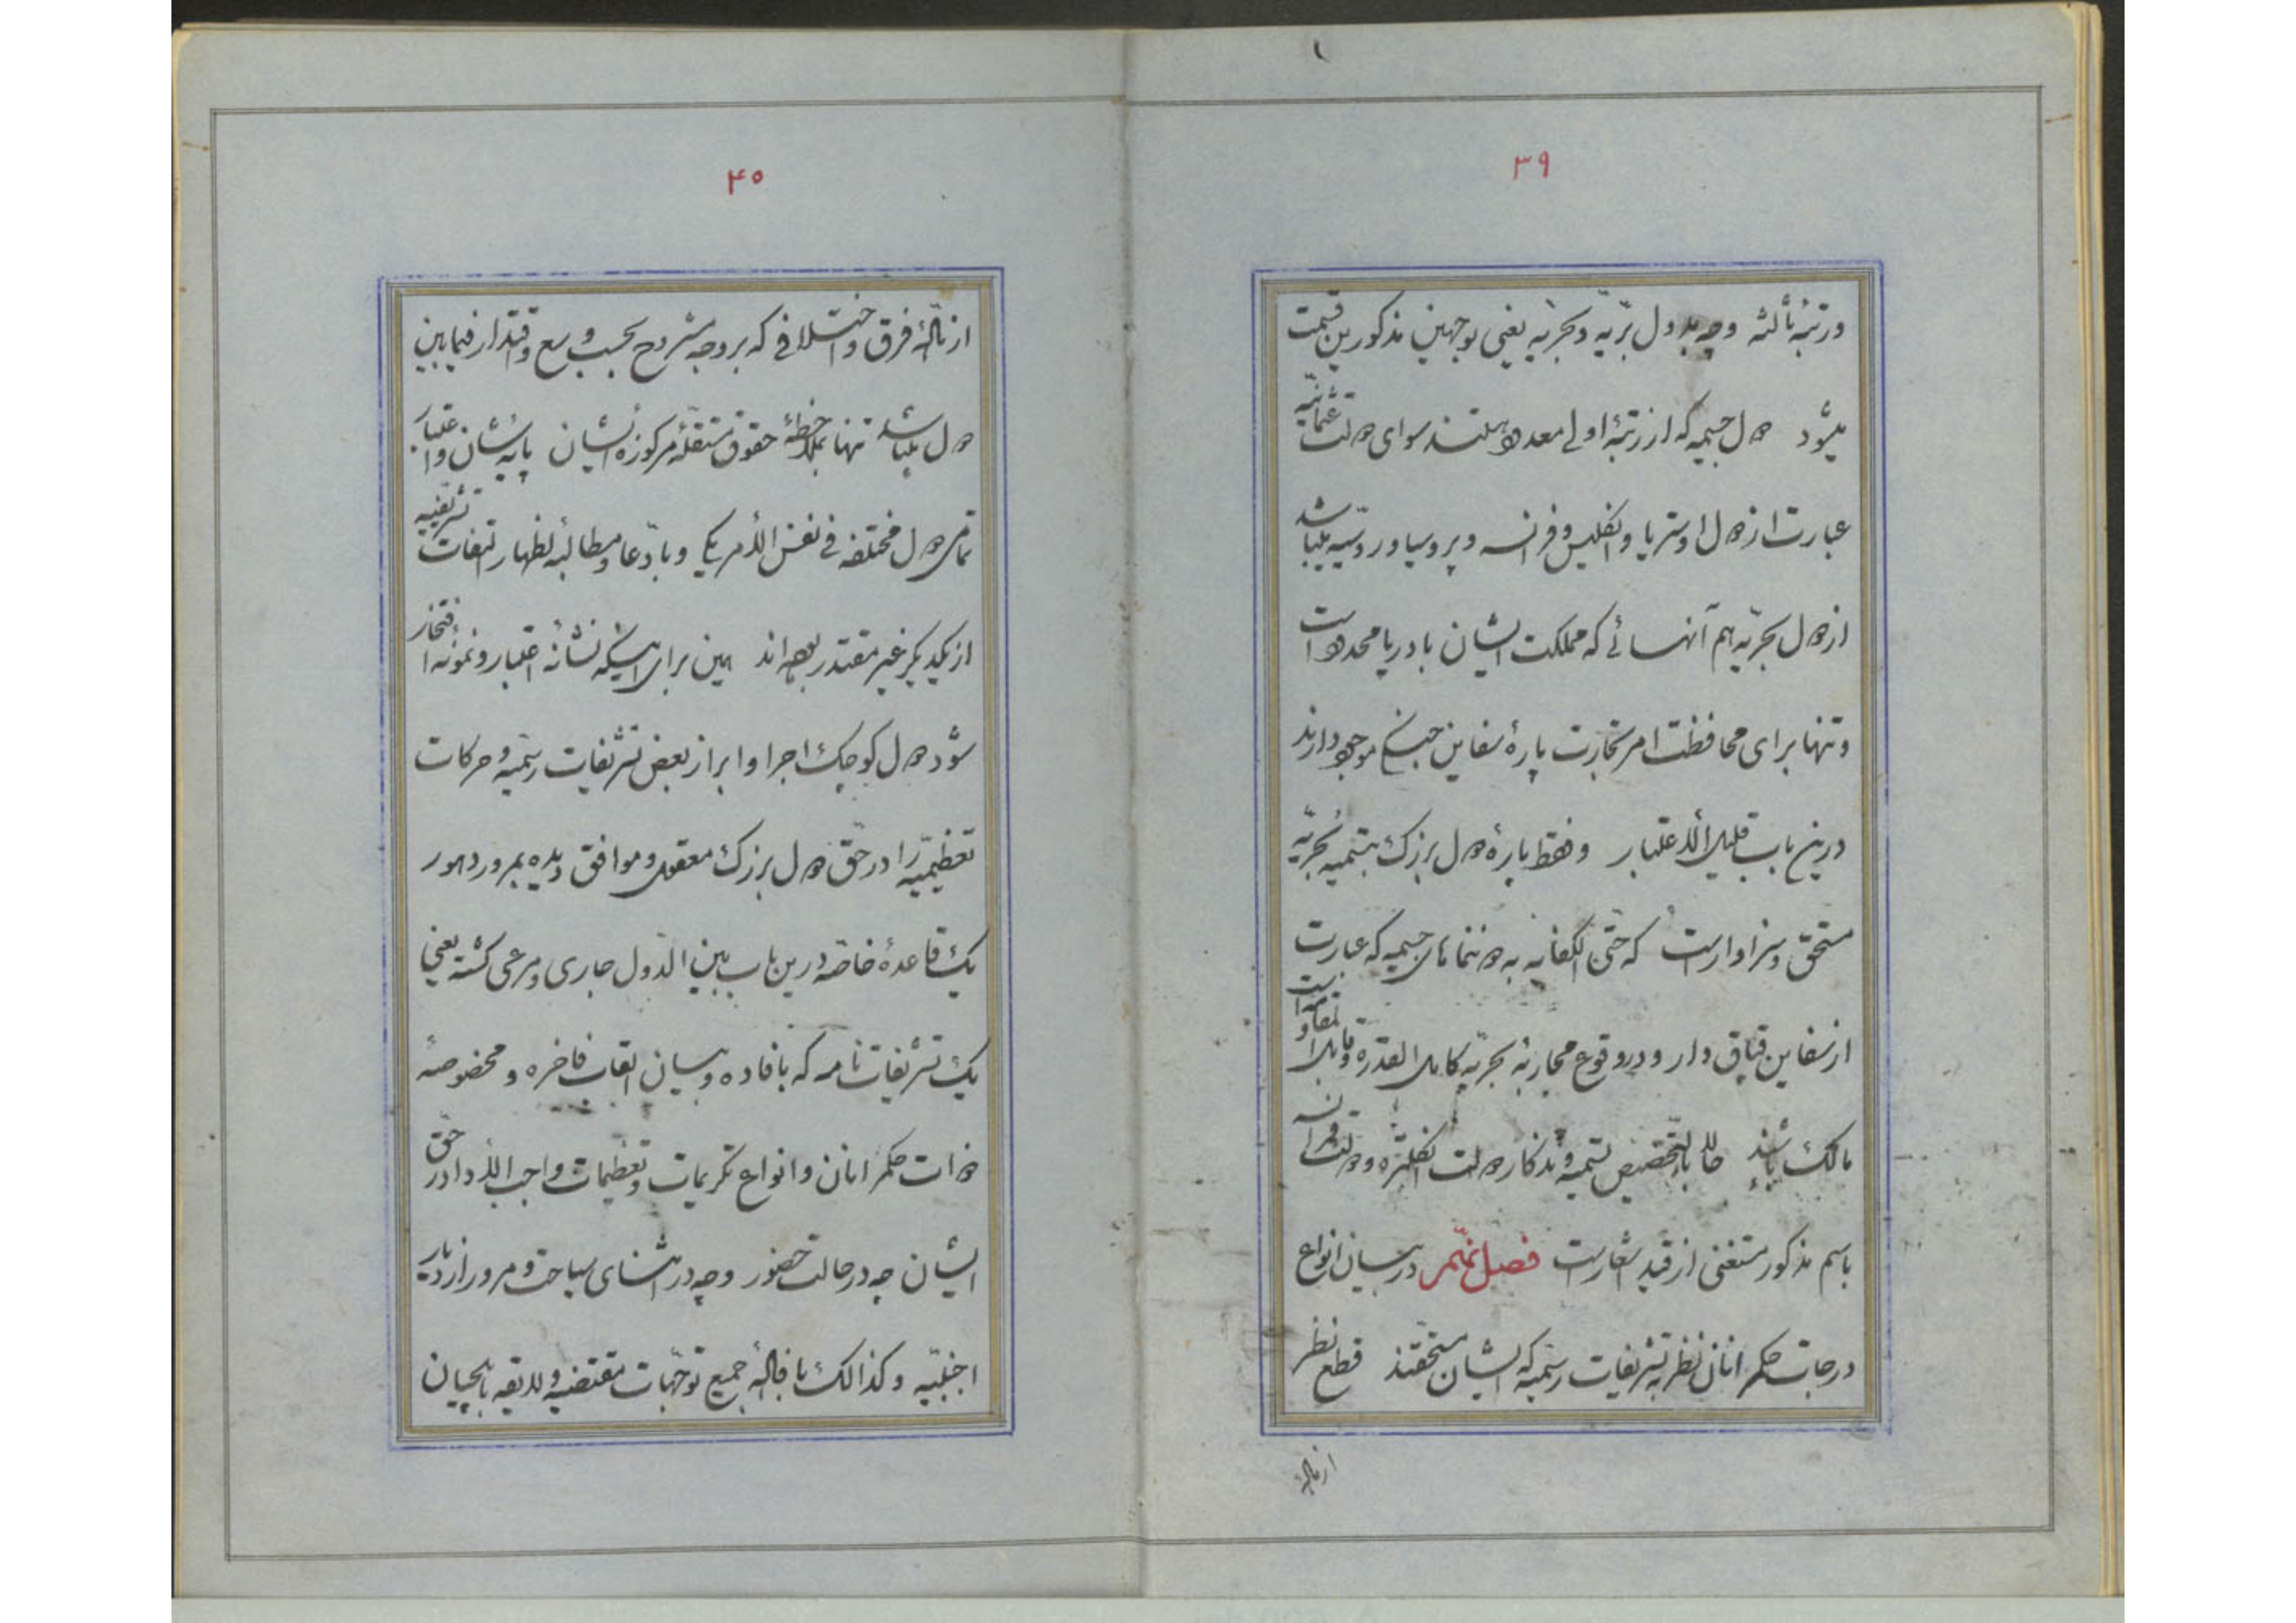 ۳۹
ورتبهٔ ثالثه وچه بدول برّیه وبحریّه یعنی بوجهین مذکورین قسمت
میشود دول جسیمه که از رتبهٔ اولی معدود هستند سوای دولت عثمانیّه
عبارت از دول اوستریا وانکلیس وفرانسه وپروسیا وروسیّه میباشد
از دول بحریّه هم آنهائی که مملکت ایشان با دریا محدود است
وتنها برای محافظت امر تجارت پارهٔ سفاین جنکی موجود دارند
درین باب قلیل الاعتبار وفقط پارهٔ دول بزرک بتسمیهٔ بحریّه
مستحق وسزاوار است که حتی الکفایه به دوننماهای جسیمه که عبارت است
از سفاین قپاق دار ودر وقوع محاربهٔ بحریّه کامل القدره وقابل المقاومه
مالک باشند حالا بالتخصیص تسمیه وتذکار دولت انکلتره ودولت فرانسه
باسم مذکور مستغنی از قید اشعار است فصل پنجم در بیان انواع
درجات حکمرانان نظر به تشریفات رسمیّه که ایشان مستحقند قطع نظر
از ازالهٔ
۴۰
از ازالهٔ فرق واختلافی که بر وجه مشروح بحسب وسع واقتدار فیمابین
دول میباشد تنها بملاحظهٔ حقوق مستقلّهٔ مرکوزهٔ ایشان پایه شان واعتبار
تمامی دول مختلفه فی نفس الأمر یکی وبادّعا ومطالبهٔ اظهار التفات تشریفیّه
از یکدیکر غیر مقتدر بوده اند همین برای اینکه نشانهٔ اعتبار ونمونهٔ افتخار
شود دول کوچک اجرا وابراز بعض تشریفات رسمیّه وحرکات
تعظیمیّه را در حقّ دول بزرک معقول وموافق دیده بمرور دهور
یک قاعدهٔ خاصّه درین باب بین الدّول جاری ومرعی کشته یعنی
یک تشریفات نامه که بافاده وبیان القاب فاخره ومخصوصهٔ
ذوات حکمرانان وانواع تکریمات وتعظیمات واجب الأدا در حقّ
ایشان چه در حالت حضور وچه در اثنای سیاحت ومرور از دیار
اجنبیّه وکذالک بافالهٔ جمیع توجّهات مقتضیه ولایقه بایلچیان